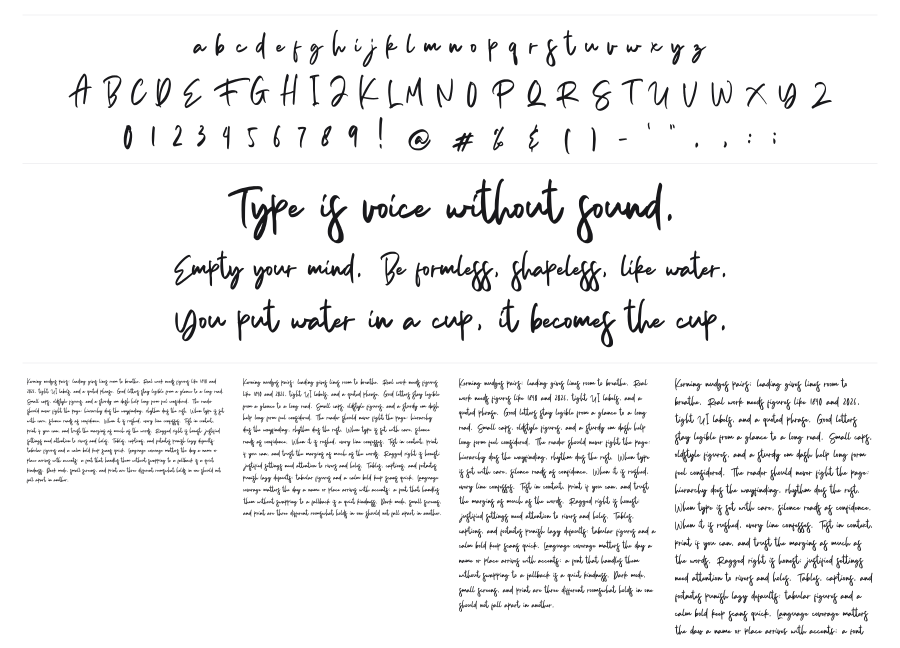 a b c d e f g h i j k l m n o p q r s t u v w x y z
A B C D E F G H I J K L M N O P Q R S T U V W X Y Z
0 1 2 3 4 5 6 7 8 9 ! @ # % & ( ) - ' " . , : ;
Type is voice without sound.
Empty your mind. Be formless, shapeless, like water.
You put water in a cup, it becomes the cup.
Kerning nudges pairs; leading gives lines room to breathe. Real work needs figures like 1890 and
2026, tight UI labels, and a quoted phrase. Good letters stay legible from a glance to a long read.
Small caps, oldstyle figures, and a sturdy em dash help long form feel considered. The reader
should never fight the page: hierarchy does the wayfinding, rhythm does the rest. When type is set
with care, silence reads as confidence. When it is rushed, every line confesses. Test in context,
print if you can, and trust the margins as much as the words. Ragged right is honest; justified
settings need attention to rivers and holes. Tables, captions, and footnotes punish lazy defaults:
tabular figures and a calm bold keep scans quick. Language coverage matters the day a name or
place arrives with accents: a font that handles them without swapping to a fallback is a quiet
kindness. Dark mode, small screens, and print are three different rooms; what holds in one should not
fall apart in another.
Kerning nudges pairs; leading gives lines room to breathe. Real work needs figures
like 1890 and 2026, tight UI labels, and a quoted phrase. Good letters stay legible
from a glance to a long read. Small caps, oldstyle figures, and a sturdy em dash
help long form feel considered. The reader should never fight the page: hierarchy
does the wayfinding, rhythm does the rest. When type is set with care, silence
reads as confidence. When it is rushed, every line confesses. Test in context, print
if you can, and trust the margins as much as the words. Ragged right is honest;
justified settings need attention to rivers and holes. Tables, captions, and footnotes
punish lazy defaults: tabular figures and a calm bold keep scans quick. Language
coverage matters the day a name or place arrives with accents: a font that handles
them without swapping to a fallback is a quiet kindness. Dark mode, small screens,
and print are three different rooms; what holds in one should not fall apart in another.
Kerning nudges pairs; leading gives lines room to breathe. Real
work needs figures like 1890 and 2026, tight UI labels, and a
quoted phrase. Good letters stay legible from a glance to a long
read. Small caps, oldstyle figures, and a sturdy em dash help
long form feel considered. The reader should never fight the page:
hierarchy does the wayfinding, rhythm does the rest. When type
is set with care, silence reads as confidence. When it is rushed,
every line confesses. Test in context, print if you can, and trust
the margins as much as the words. Ragged right is honest;
justified settings need attention to rivers and holes. Tables,
captions, and footnotes punish lazy defaults: tabular figures and a
calm bold keep scans quick. Language coverage matters the day a
name or place arrives with accents: a font that handles them
without swapping to a fallback is a quiet kindness. Dark mode,
small screens, and print are three different rooms; what holds in one
should not fall apart in another.
Kerning nudges pairs; leading gives lines room to
breathe. Real work needs figures like 1890 and 2026,
tight UI labels, and a quoted phrase. Good letters
stay legible from a glance to a long read. Small caps,
oldstyle figures, and a sturdy em dash help long form
feel considered. The reader should never fight the page:
hierarchy does the wayfinding, rhythm does the rest.
When type is set with care, silence reads as confidence.
When it is rushed, every line confesses. Test in context,
print if you can, and trust the margins as much as
the words. Ragged right is honest; justified settings
need attention to rivers and holes. Tables, captions, and
footnotes punish lazy defaults: tabular figures and a
calm bold keep scans quick. Language coverage matters
the day a name or place arrives with accents: a font